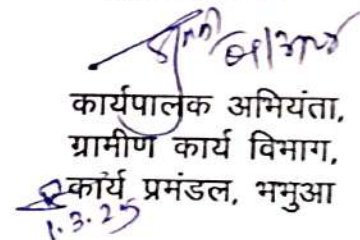 कार्यपालक अभियंता,
ग्रामीण कार्य विभाग,
कार्य प्रमंडल, भभुआ
1.3.25